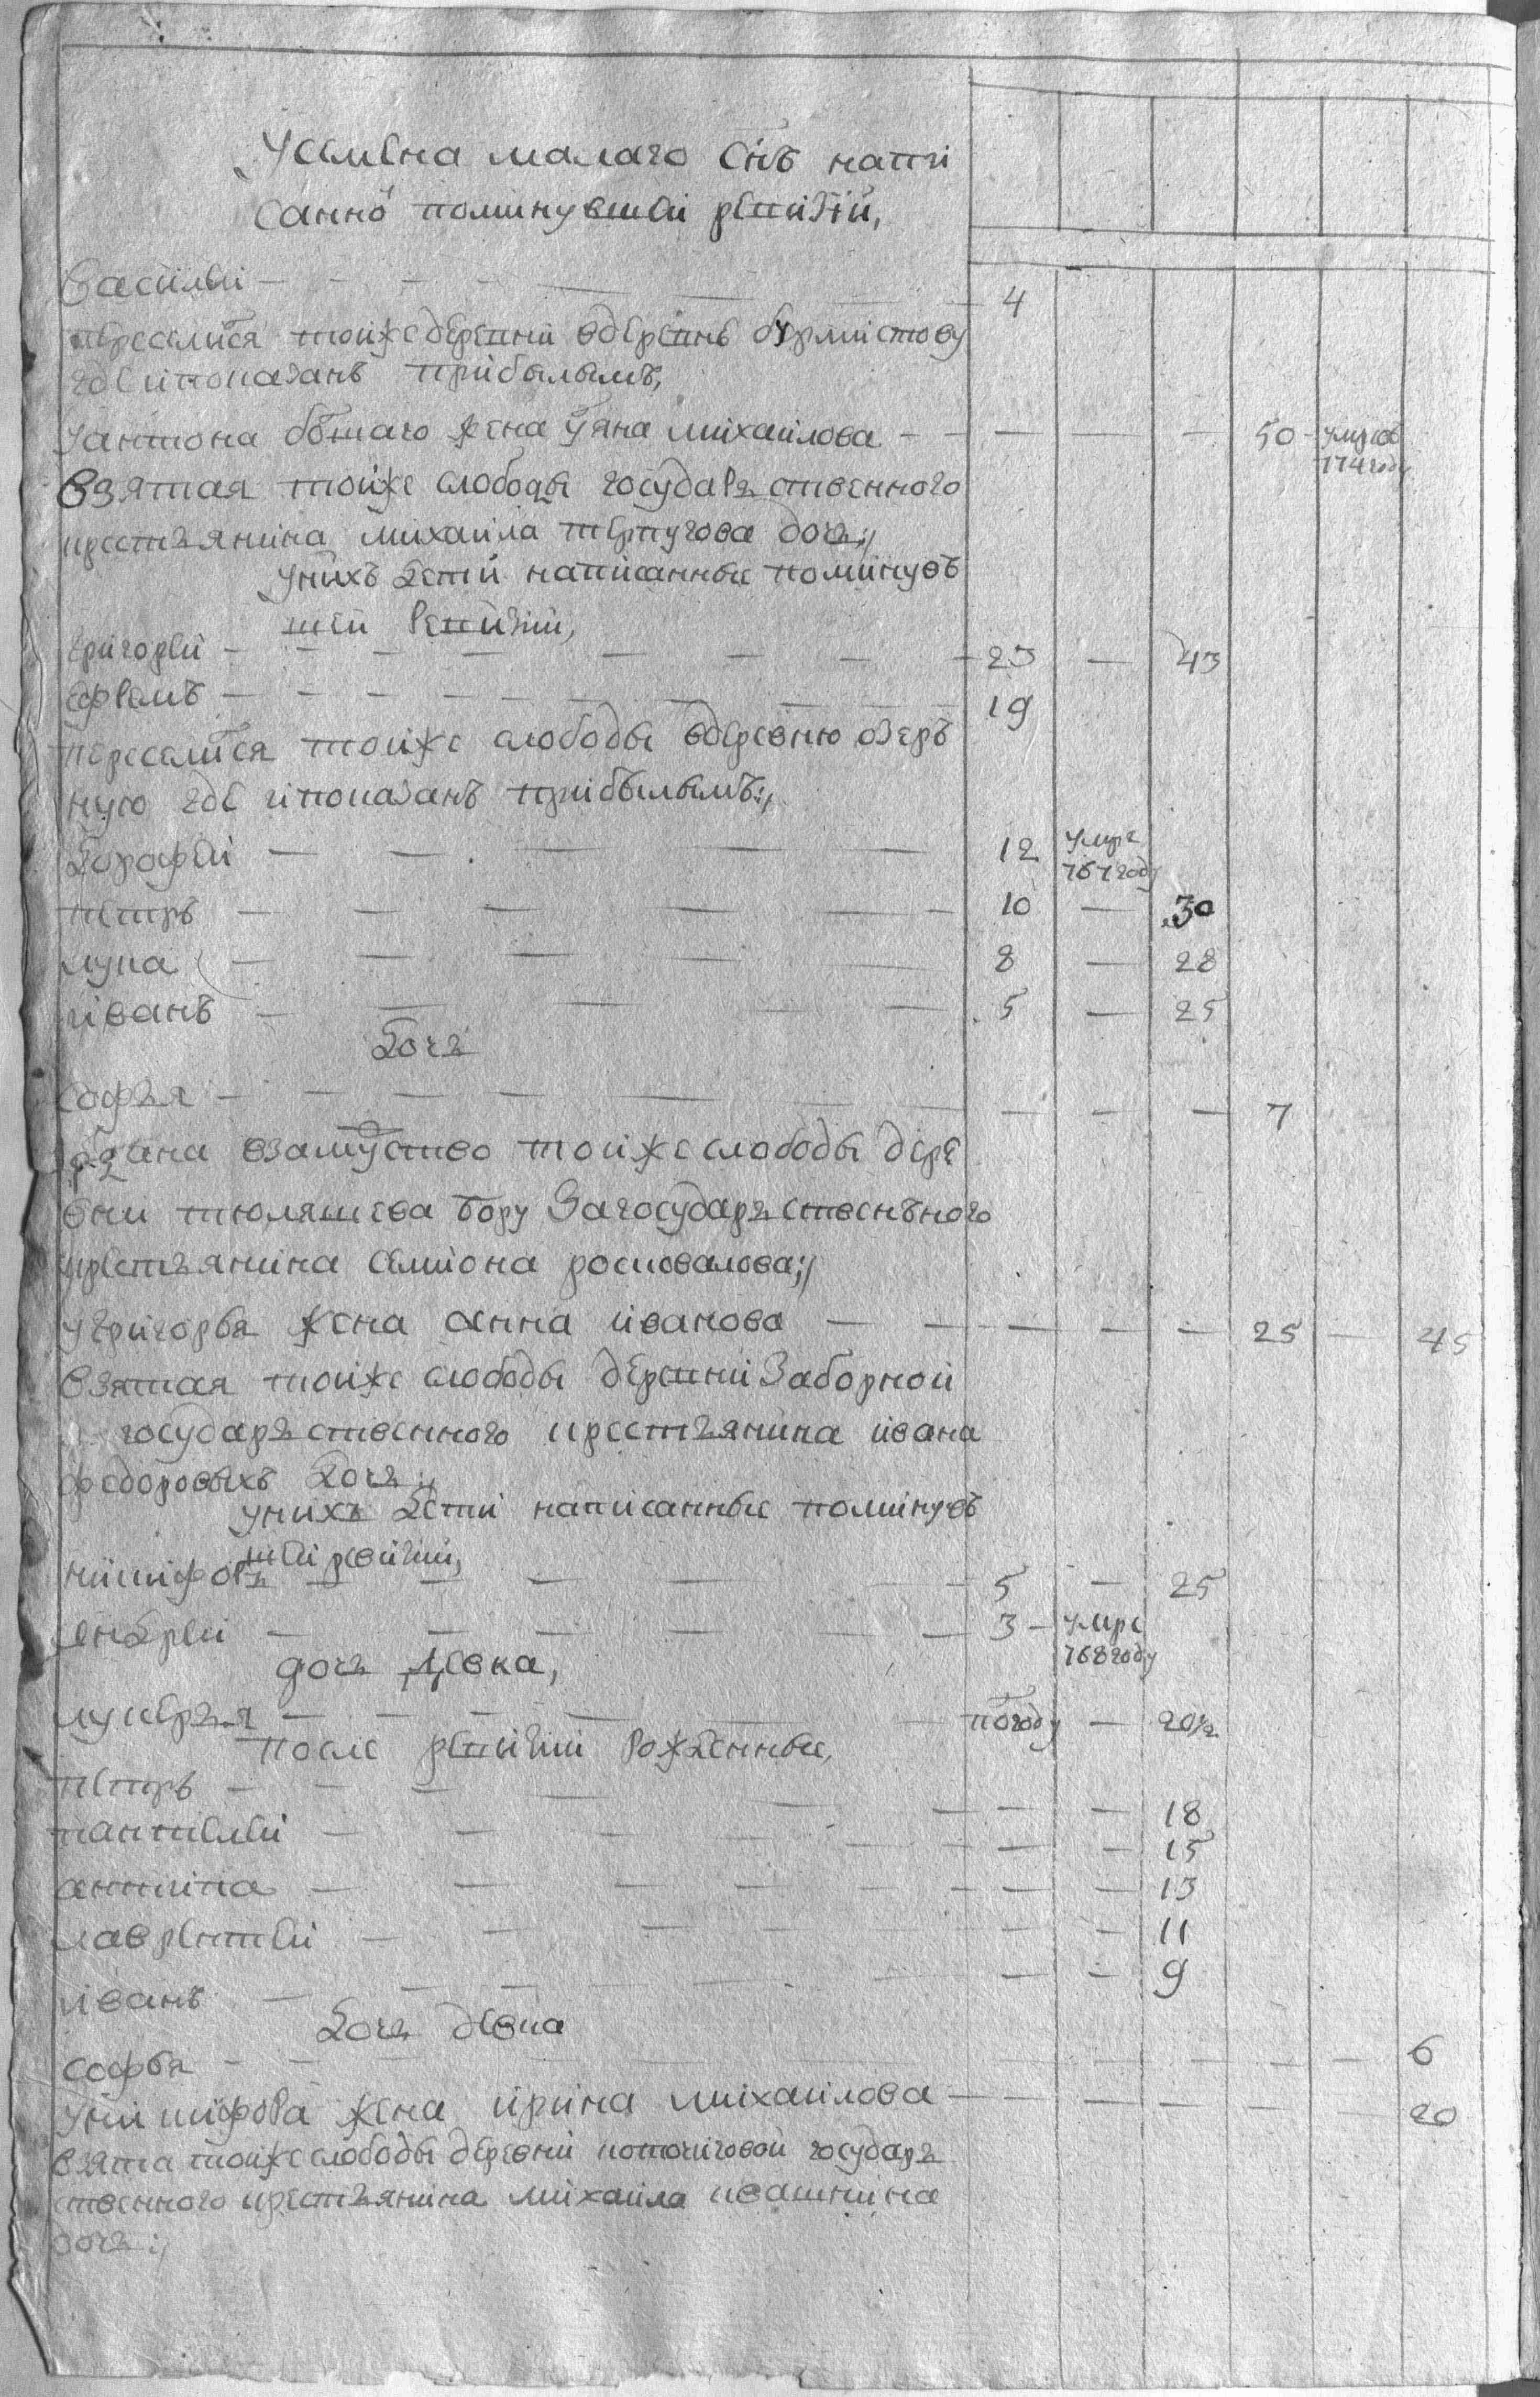 У семена малаго снъ напи
санно поминувшей ревизии,
василеи — 4
переселился тойже деревни вдеревне бурмистову
где ипоказанъ прибылымъ,
У антона болшаго жена уляна михаилова — — — 50 - умрла
774 году
взятая тойже слободы государственного
крестьянина михаила дочь,,
унихъ дети написанные поминув
шей ревизии,
григореи — 23 — 43
ефремъ — 19
переселился тойже слободы вдеревню озер
ную где ипоказанъ прибылымъ,,
дорофеи — 12 умре
767 году
петръ — 10 — 30
лука — 8 — 28
иванъ — 5 — 25
дочь
софья — — — — 7
выдана взамуство тойже слободы дере
вни тюляшева бору загосударственъного
крестьянина семиона росковалова,,
угригорья жена анна иванова — — — 25 — 45
взятая тойже слободы деревни заборной
государственного крестьянина ивана
федоровыхъ дочь,,
унихъ дети написанные поминув
шей ревизии,
никифоръ — 5 — 25
андреи — 3 - умре
768 году
дочь девка,
лукерья — полгоду — 20½
после ревизии рожденные,
петръ — — — 18
пантелеи — — — 15
антипа — — — 13
лаврентеи — — 11
иванъ — — — 9
дочь девка
софья — — — — — 6
уникифора жена ирина михаилова — — — — — 20
взята тойже слободы деревни государ
ственного крестьянина михаила ивашкина
дочь,,